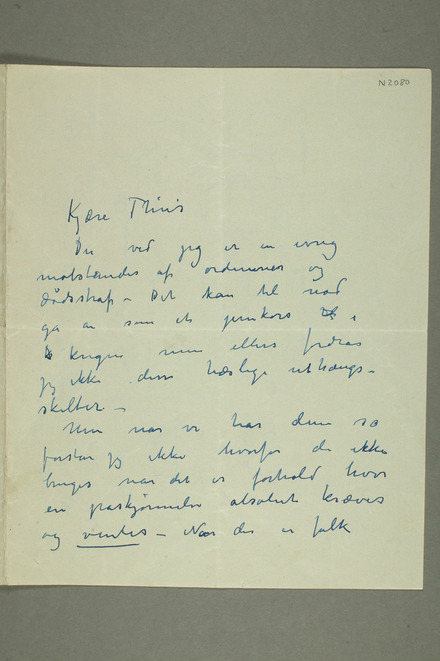 N 2080
Kjære Thiis
Du ved jeg er en ivrig
motstander af ordener og
dødsstraf – Det kan til nød
gå an som et jernkors i
krigen men ellers fordrar
jeg ikke disse hæslige uthængs-
skilter –
Men når vi har dem så
forstår jeg ikke hvorfor de ikke
bruges når det er forhold hvor
en påskjønnelse absolut kræves
og ventes – Når der er folk